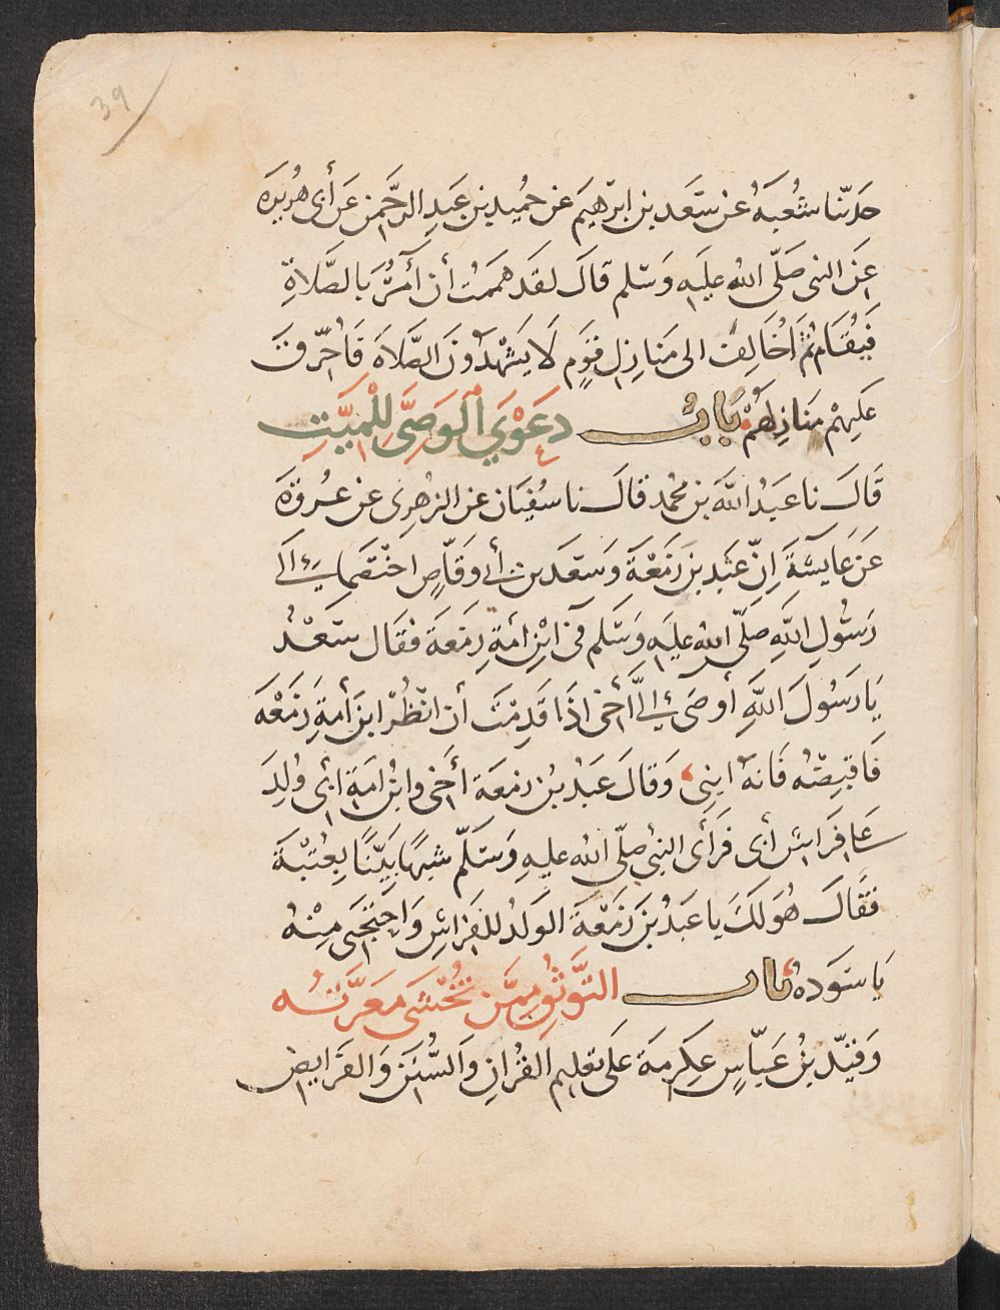 39
حَدّثنا شُعْبَةُ عَن سَعَد بن ابرٰهيمَ عَن حُميد بن عَبدِ الرَّحَمن عَن أبى هريرَه
عَن النبى صَلّى اللهُ عَليَهِ وَسَلم قالَ لقَد هَممَتُ أن آمُرَ بالصَّلاةِ
فَتُقَام ثُمَّ اُخَالِفَ الى مَنازِل قَوٍم لَا يَشْهدُونَ الصَّلاةَ فَاُحَرّقَ
عَليَهمْ مَنازلَهُمْ بَابُ دعَوْىَ الوَصَىِّ لِلْميَّتِ
قَالَ نا عَبدُ اللهَ بن محُمد قالَ نا سُفيَان عَن الزهُرِى عَن عُروَةَ
عَن عَايشَةَ اِنّ عَبْد بن زَمَعْةَ وَسَعَد بن أبى وَقّاصٍ اختَصَما إلى
رَسُولِ اللهِ صَلّى الله عليَهِ وَسَلم فى ابْنِ أمَةِ زمَعَةَ فقَال سَعْدُ
يَا رَسُولَ اللهِ أوصَى إلىَّ أخى اذَا قَدِمْتَ أن انْظُرْ ابن أمَةِ زَمَعْه
فَاقبِضْه فَانهُ ابنِى وَقالَ عَبْدُ بْن زمعَة أخِى وابْن امَةِ أبى وُلِدَ
عَلى فرَاشِ أبى فرَأى النبىُ صلّى الله عليهِ وَسَلّم شبهًا بيّنًا بعُتبْةَ
فقَالَ هُوَ لكَ يا عَبدُ بْنَ زَمْعَةَ الوَلدُ للفِرَاشِ وَاحْتَجِبى مِنْهُ
يَا سَوَده بَاب التَّوَثُّقِ مِمّن تُخْشَى مَعَرَّتُه
وَقيّدَ بْنُ عَبّاسٍ عِكرِمَةَ عَلى تعَليم القُرانِ وَالسُّنَن وَالفَرَايِض